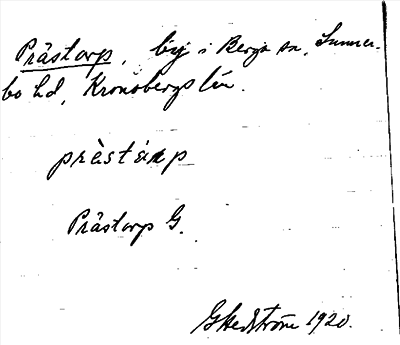 Prästorp, by i Berga sn, Sunner-
bo hd, Kronobergs län.
prèstárp
Prästorp G.
G Hedström 1920.